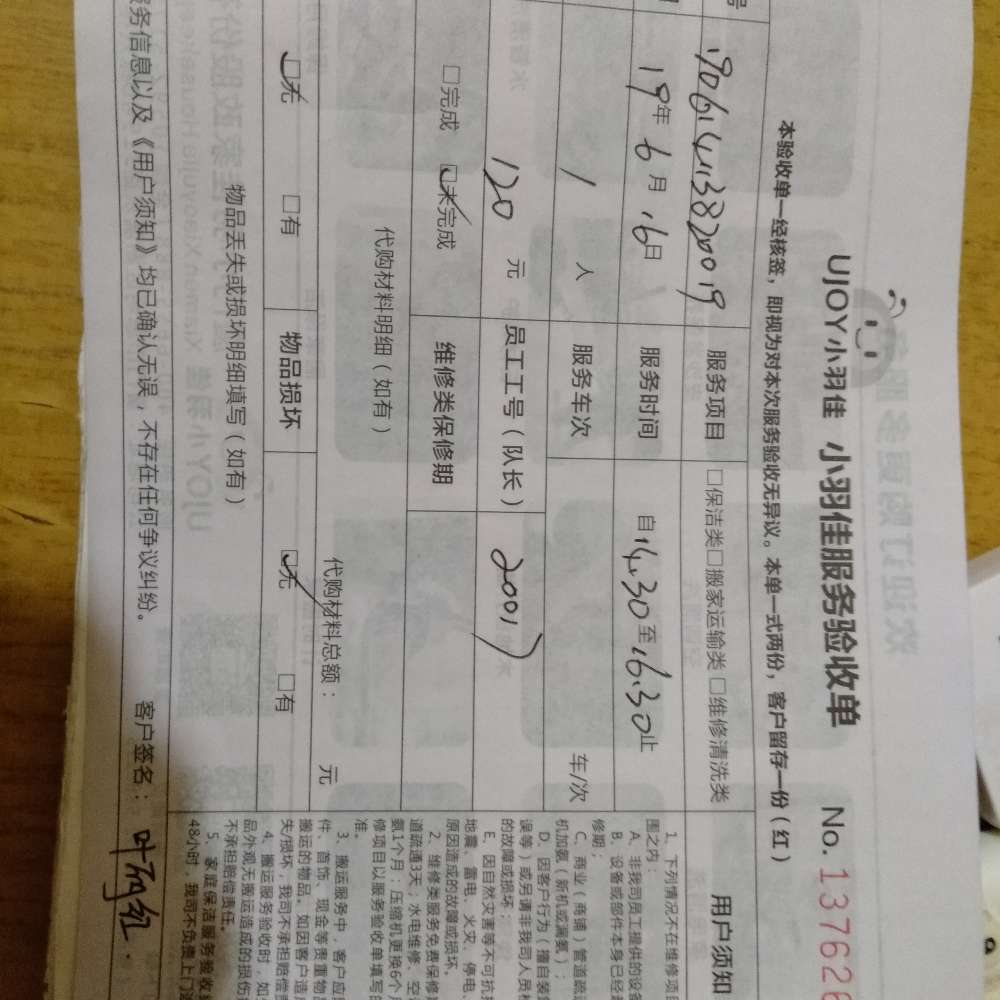 UJOY小羽佳 小羽佳服务验收单 No. 137626
本验收单一经核签，即视为对本次服务验收无异议。本单一式两份，客户留存一份（红）
号 服务项目 □保洁类□搬家运输类□维修清洗类
19年6月16日 服务时间 自14.30至16.30止
1人 服务车次 车/次
120元 员工工号（队长） 2001
□完成 □未完成 维修类保修期
代购材料明细（如有） 代购材料总额： 元
□无 □有 物品损坏 □无 □有
物品丢失或损坏明细填写（如有）
务信息以及《用户须知》均已确认无误，不存在任何争议纠纷。 客户签名：
用户须知
1、下列情况不在维修项目
围之内：
A、非我司员工提供的设备
B、设备或部件本身已经
修期；
C、商业（商铺）管道疏
机加氨（新机或漏氨）；
D、因客户行为（擅自装
误等）或另请非我司人员
的故障或损坏；
E、因自然灾害等不可抗
地震、雷电、火灾、停电、
原因造成的故障或损坏。
2、维修类服务免费保修
道疏通3天；水电维修、空
氨1个月；压缩机更换6个月
修项目以服务验收单填写的
准。
3、搬运服务中，客户应
件、首饰、现金等贵重物品
搬运的物品。如因客户造成
失/损坏，我司不承担赔偿
4、搬运服务验收时，如
品外观无搬运造成的损伤
不承担赔偿责任。
5、家庭保洁服务验收
48小时，我司不负责上门